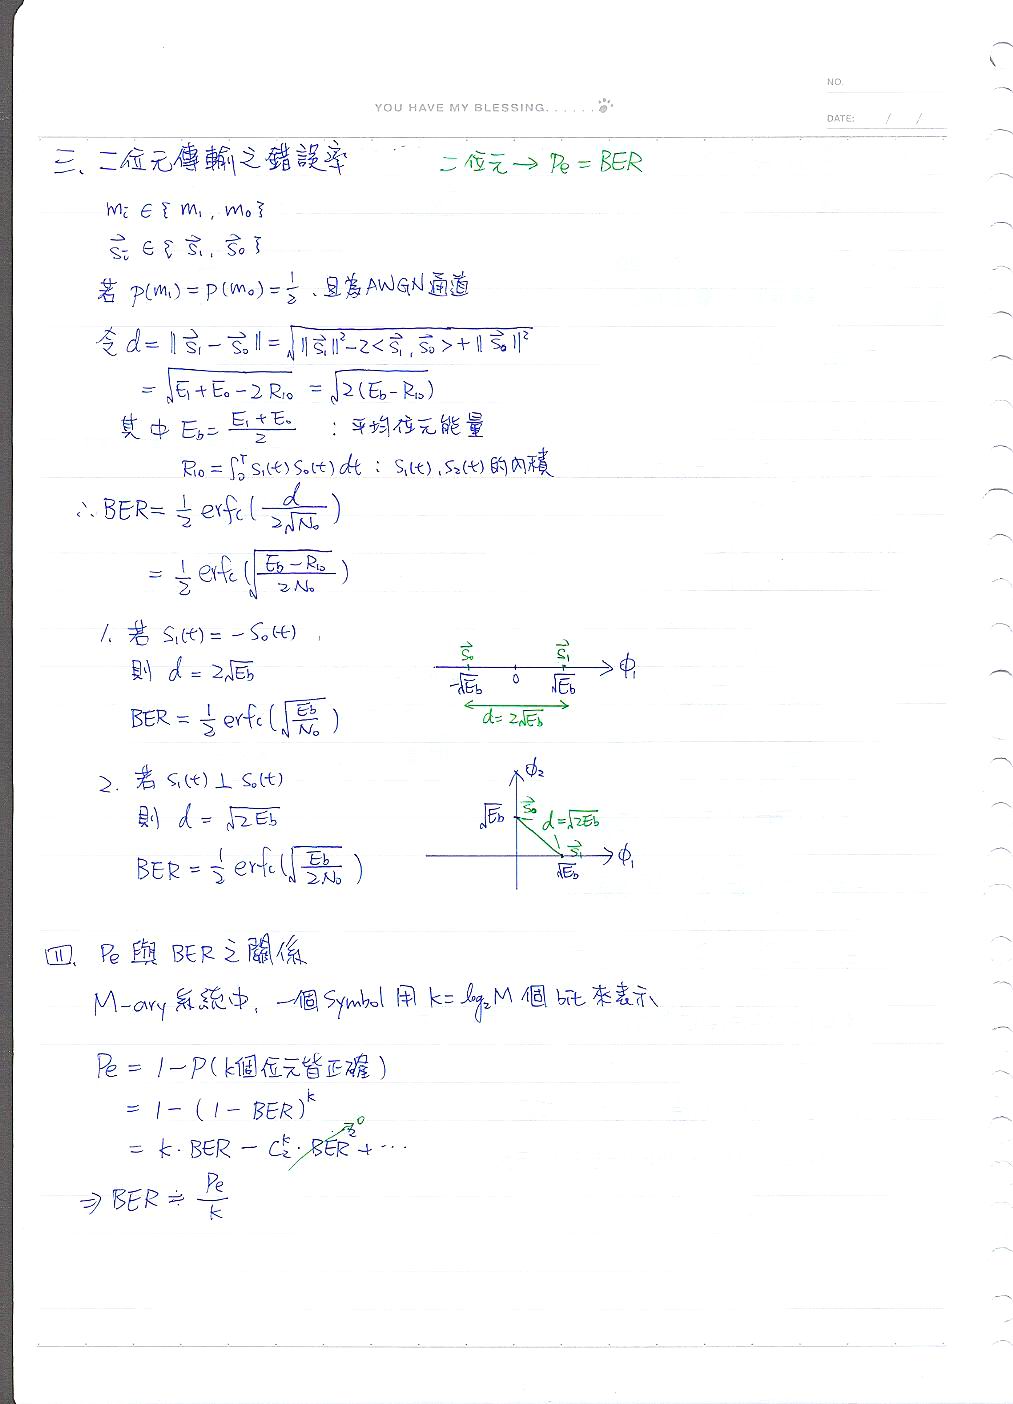 NO.
YOU HAVE MY BLESSING......
DATE: / /
三、二位元傳輸之錯誤率 二位元→ Pe = BER
mi ∈ { m1, m0 }
s⃗i ∈ { s⃗1, s⃗0 }
若 p(m1) = p(m0) = 1/2、且為AWGN通道
令 d = ‖s⃗1 - s⃗0‖ = √(‖s⃗1‖² - 2<s⃗1, s⃗0> + ‖s⃗0‖²)
= √(E1 + E0 - 2R10) = √(2(Eb - R10))
其中 Eb = (E1 + E0)/2 : 平均位元能量
R10 = ∫0^T s1(t) s0(t) dt : s1(t), s2(t) 的內積
∴ BER = 1/2 erfc( d / 2√N0 )
= 1/2 erfc( √((Eb - R10)/2N0) )
1. 若 s1(t) = -s0(t) ,
則 d = 2√Eb
BER = 1/2 erfc( √(Eb/N0) )
s⃗0 s⃗1
-√Eb 0 √Eb φ1
d = 2√Eb
2. 若 s1(t) ⊥ s0(t)
則 d = √(2Eb)
BER = 1/2 erfc( √(Eb/2N0) )
φ2
√Eb s⃗0 d = √(2Eb)
s⃗1 φ1
√Eb
四. Pe 與 BER 之關係
M-ary 系統中, 一個 Symbol 用 k = log2 M 個 bit 來表示
Pe = 1 - P( k個位元皆正確 )
= 1 - (1 - BER)^k
= k · BER - C2^k · BER² + ⋯ →0
⇒ BER ≒ Pe/k